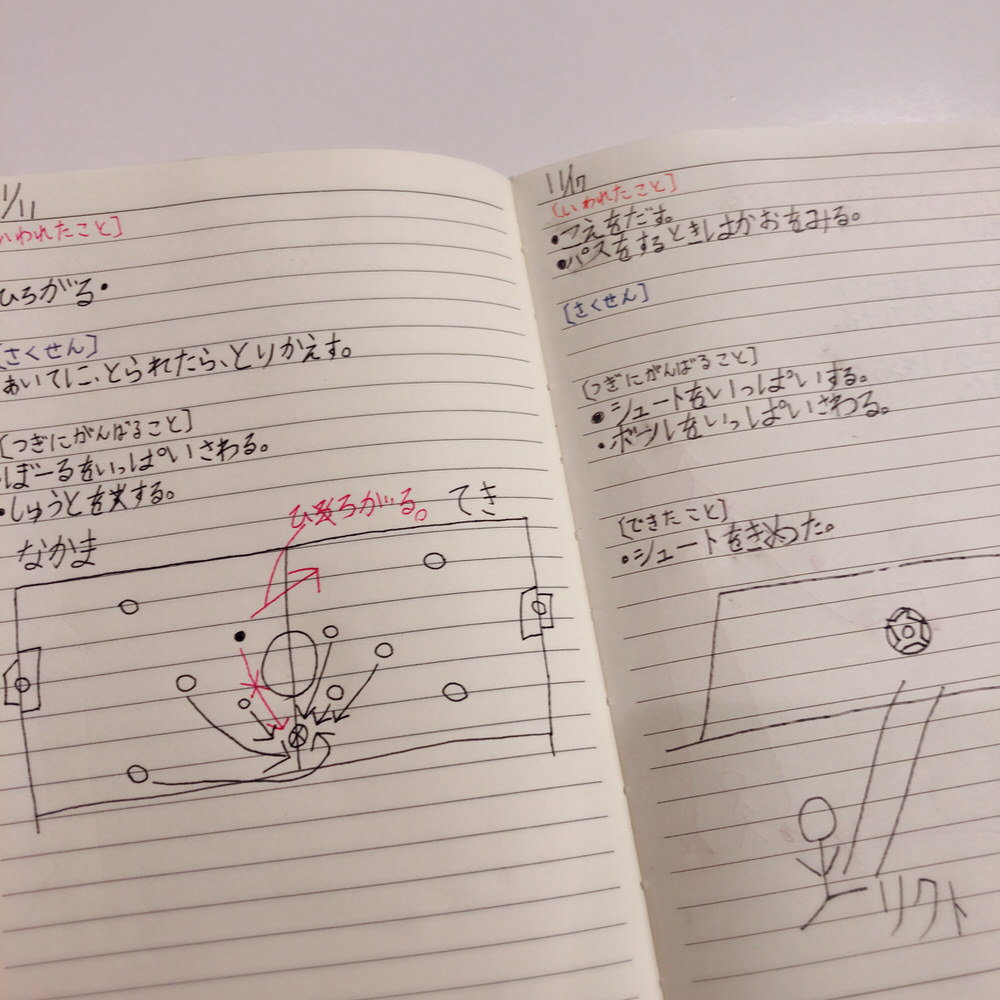 1/11
いわれたこと]
ひろがる・
[さくせん]
あいてに、とられたら、とりかえす。
[つぎにがんばること]
・ぼーるをいっぱいさわる。
・しゅうとをする。
ひろがる。
てき
なかま
11/17
[いわれたこと]
・こえをだす。
・パスをするときはかおをみる。
[さくせん]
[つぎにがんばること]
・シュートをいっぱいする。
・ボールをいっぱいさわる。
[できたこと]
・シュートをきめた。
リクト